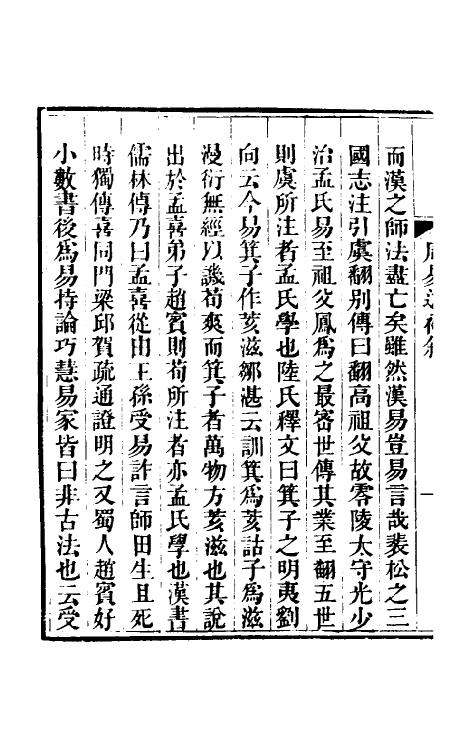 而漢之師法盡亡矣雖然漢易豈易言哉裴松之三
國志注引虞翻别傳曰翻高祖父故零陵太守光少
治孟氏易至祖父鳳為之最密世傳其業至翻五世
則虞所注者孟氏學也陸氏釋文曰箕子之明夷劉
向云今易箕子作荄滋鄒湛云訓箕為荄詁子為滋
漫衍無經以譏荀爽而箕子者萬物方荄滋也其說
出於孟喜弟子趙賓則荀所注者亦孟氏學也漢書
儒林傳乃曰孟喜從田王孫受易詐言師田生且死
時獨傳喜同門梁邱賀疏通證明之又蜀人趙賓好
小數書後為易持論巧慧易家皆曰非古法也云受